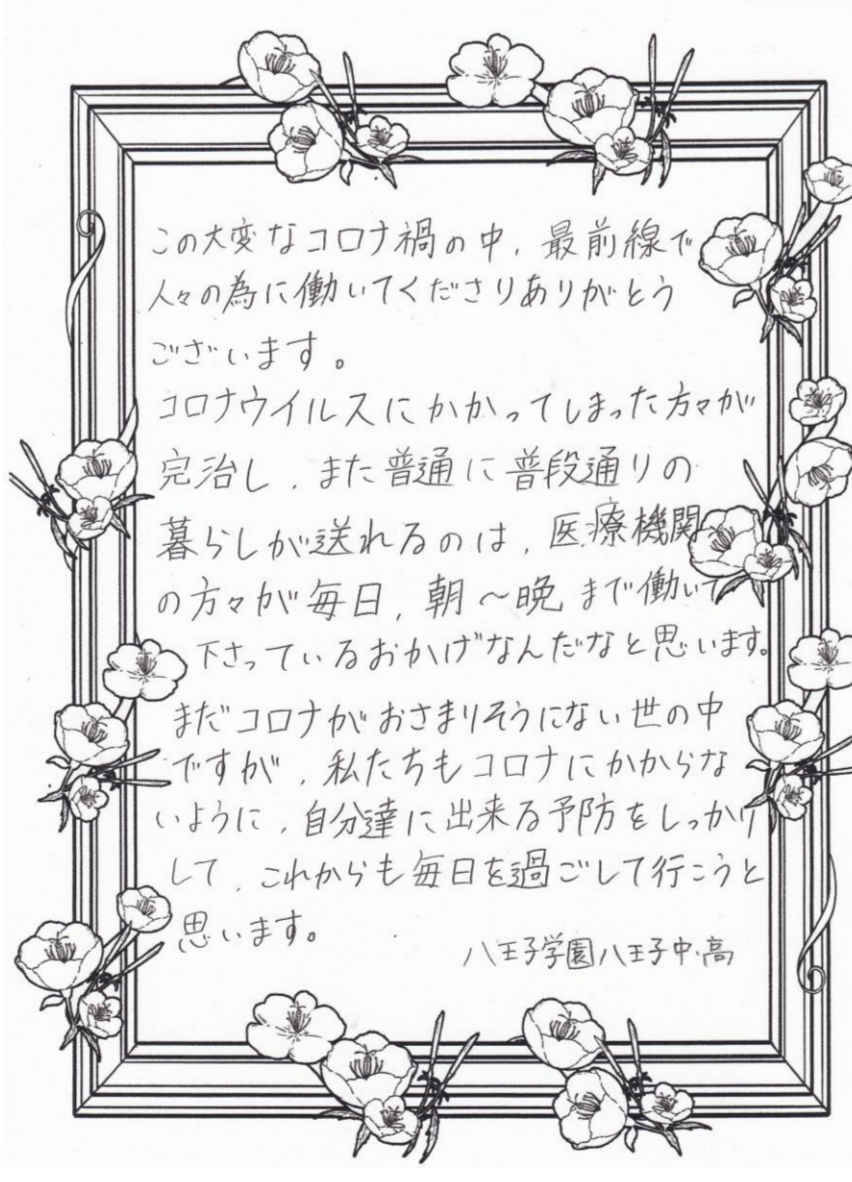 この大変なコロナ禍の中、最前線で
人々の為に働いてくださりありがとう
ございます。
コロナウイルスにかかってしまった方々が
完治し、また普通に普段通りの
暮らしが送れるのは、医療機関
の方々が毎日、朝～晩まで働いて
下さっているおかげなんだなと思います。
まだコロナがおさまりそうにない世の中
ですが、私たちもコロナにかからな
いように、自分達に出来る予防をしっかり
して、これからも毎日を過ごして行こうと
思います。
八王子学園八王子中・高